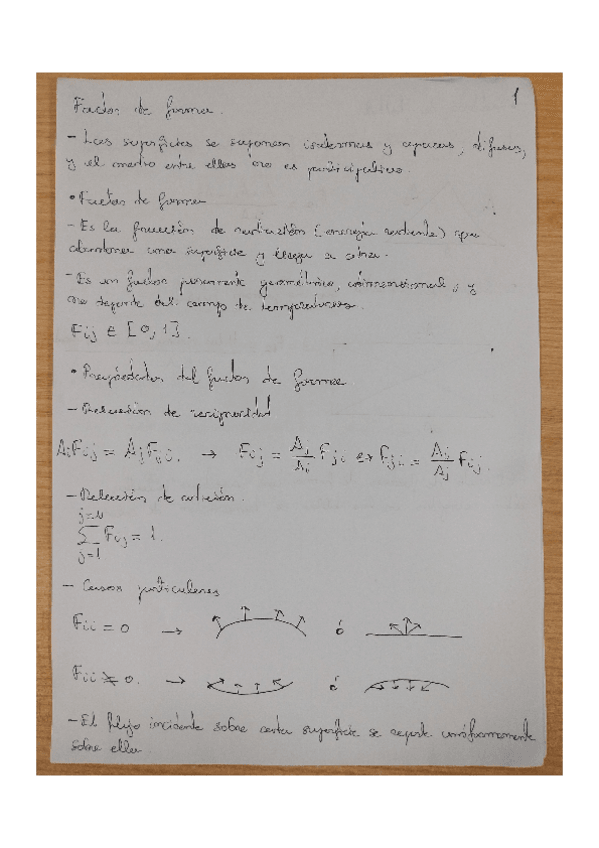 1
Factor de forma.
- Las superficies se suponen isotermas y opacas, difusas,
y el medio entre ellas no es participativo.
• Factor de forma
- Es la fracción de radiación (energía radiante) que
abandona una superficie y llega a otra.
- Es un factor puramente geométrico, adimensional, y
no depende del campo de temperaturas.
Fij ∈ [0,1].
• Propiedades del factor de forma
- Relación de reciprocidad
AiFij = AjFji. → Fij = Aj/Ai Fji ↔ Fji = Ai/Aj Fij.
- Relación de adición.
j=N
∑ Fij = 1.
j=1
- Casos particulares
Fii = 0 → ó
Fii ≠ 0. → ó
- El flujo incidente sobre cierta superficie se reparte uniformemente
sobre ella.